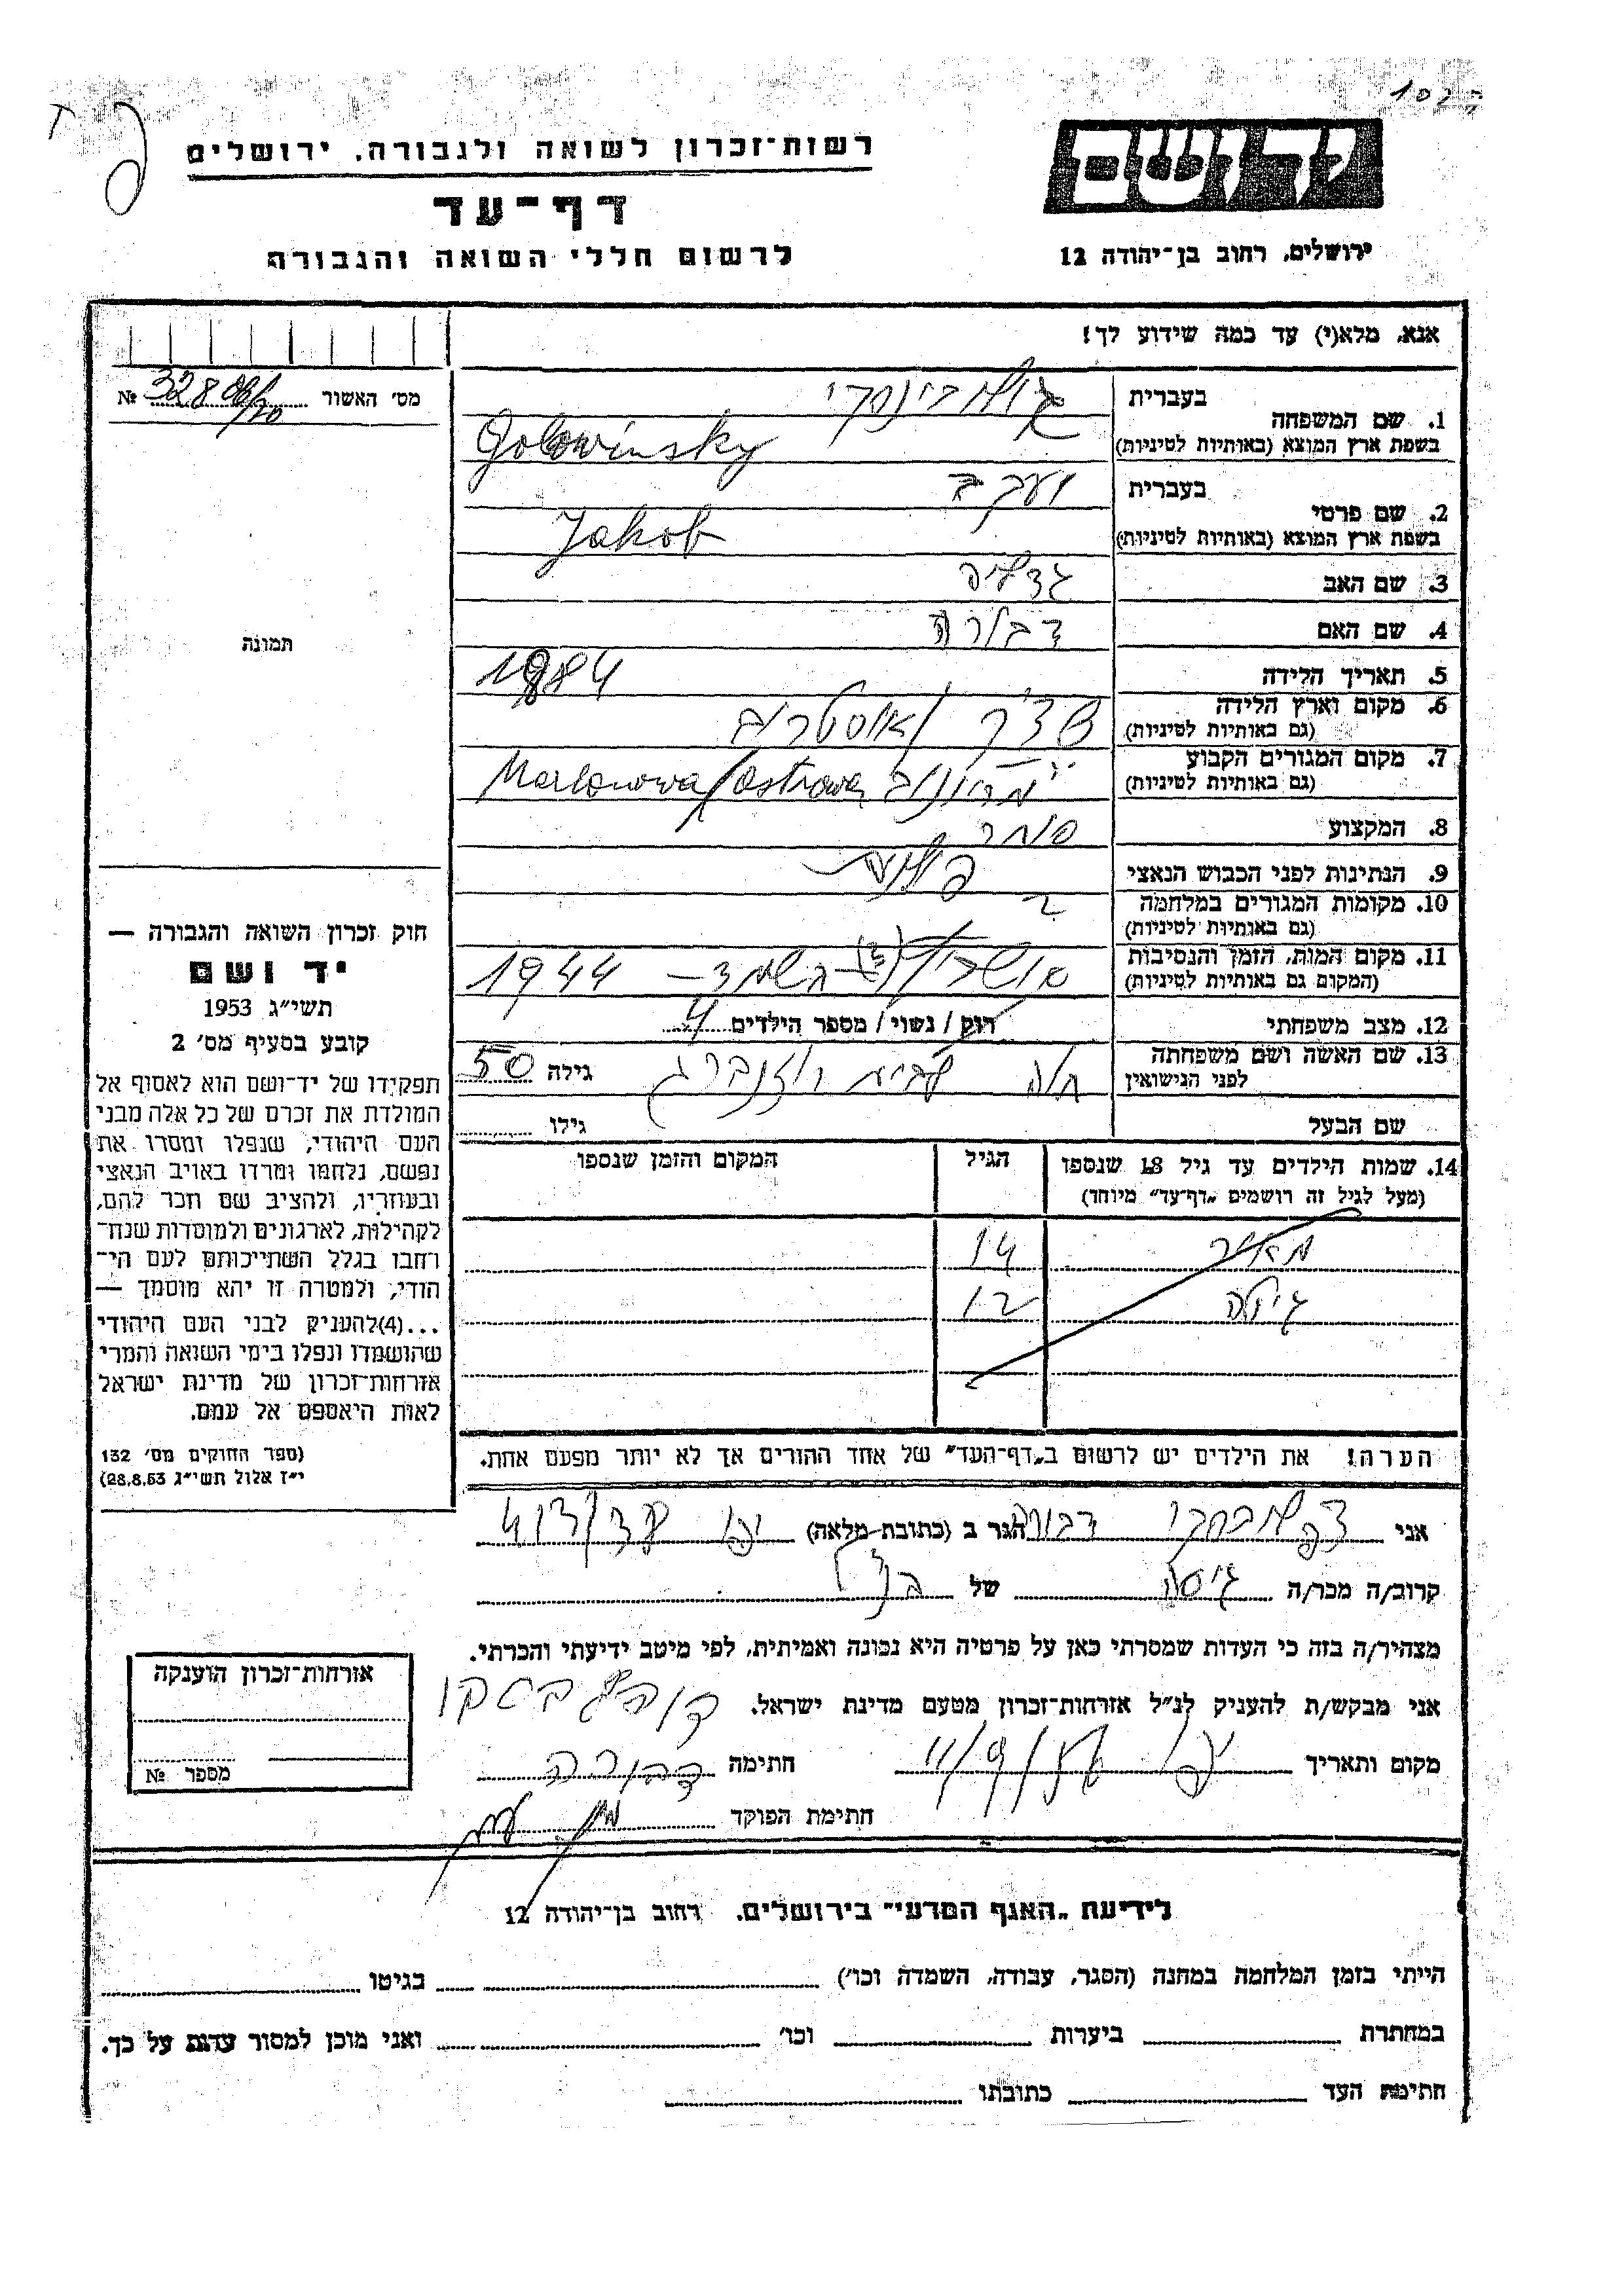 רשות־זכרון לשואה ולגבורה, ירושלים
דף־עד
לרשום חללי השואה והגבורה
ירושלים, רחוב בן־יהודה 12
אנא, מלא(י) עד כמה שידוע לך!
מס׳ האשור № 328
1. שם המשפחה
בעברית גולובינסקי
בשפת ארץ המוצא (באותיות לטיניות) Golowinsky
2. שם פרטי
בעברית יעקב
בשפת ארץ המוצא (באותיות לטיניות) Jakob
3. שם האב גדליה
4. שם האם דבורה
תמונה
5. תאריך הלידה 1884
6. מקום וארץ הלידה
(גם באותיות לטיניות)
7. מקום המגורים הקבוע Ostrowa
(גם באותיות לטיניות)
8. המקצוע סוחר
9. הנתינות לפני הכבוש הנאצי פולנית
10. מקומות המגורים במלחמה
(גם באותיות לטיניות)
11. מקום המות, הזמן והנסיבות 1944
(המקום גם באותיות לטיניות)
12. מצב משפחתי רוק / נשוי / מספר הילדים 4
13. שם האשה ושם משפחתה
לפני הנישואין
חיה לבית רוזנברג גילה 50
שם הבעל גילו
14. שמות הילדים עד גיל 18 שנספו
(מעל לגיל זה רושמים „דף־עד״ מיוחד)
הגיל
המקום והזמן שנספו
מאיר 14
12
הערה! את הילדים יש לרשום ב„דף־העד״ של אחד ההורים אך לא יותר מפעם אחת.
חוק זכרון השואה והגבורה —
יד ושם
תשי״ג 1953
קובע בסעיף מס׳ 2
תפקידו של יד־ושם הוא לאסוף אל
המולדת את זכרם של כל אלה מבני
העם היהודי, שנפלו ומסרו את
נפשם, נלחמו ומרדו באויב הנאצי
ובעוזריו, ולהציב שם וזכר להם,
לקהילות, לארגונים ולמוסדות שנח־
רבו בגלל השתייכותם לעם הי־
הודי, ולמטרה זו יהא מוסמך —
...(4)להעניק לבני העם היהודי
שהושמדו ונפלו בימי השואה והמרי
אזרחות־זכרון של מדינת ישראל
לאות היאספם אל עמם.
(ספר החוקים מס׳ 132
י״ז אלול תשי״ג 28.8.53)
אני דבורה הגר ב (כתובת מלאה)
קרוב/ה מכר/ה גיסה של
מצהיר/ה בזה כי העדות שמסרתי כאן על פרטיה היא נכונה ואמיתית, לפי מיטב ידיעתי והכרתי.
אני מבקש/ת להעניק לנ״ל אזרחות־זכרון מטעם מדינת ישראל.
מקום ותאריך חתימה דבורה
חתימת הפוקד
אזרחות־זכרון הוענקה
מספר №
לידיעת „האגף המדעי״ בירושלים, רחוב בן־יהודה 12
הייתי בזמן המלחמה במחנה (הסגר, עבודה, השמדה וכו׳) בגיטו
במחתרת ביערות וכו׳ ואני מוכן למסור עדות על כך.
חתימת העד כתובתו